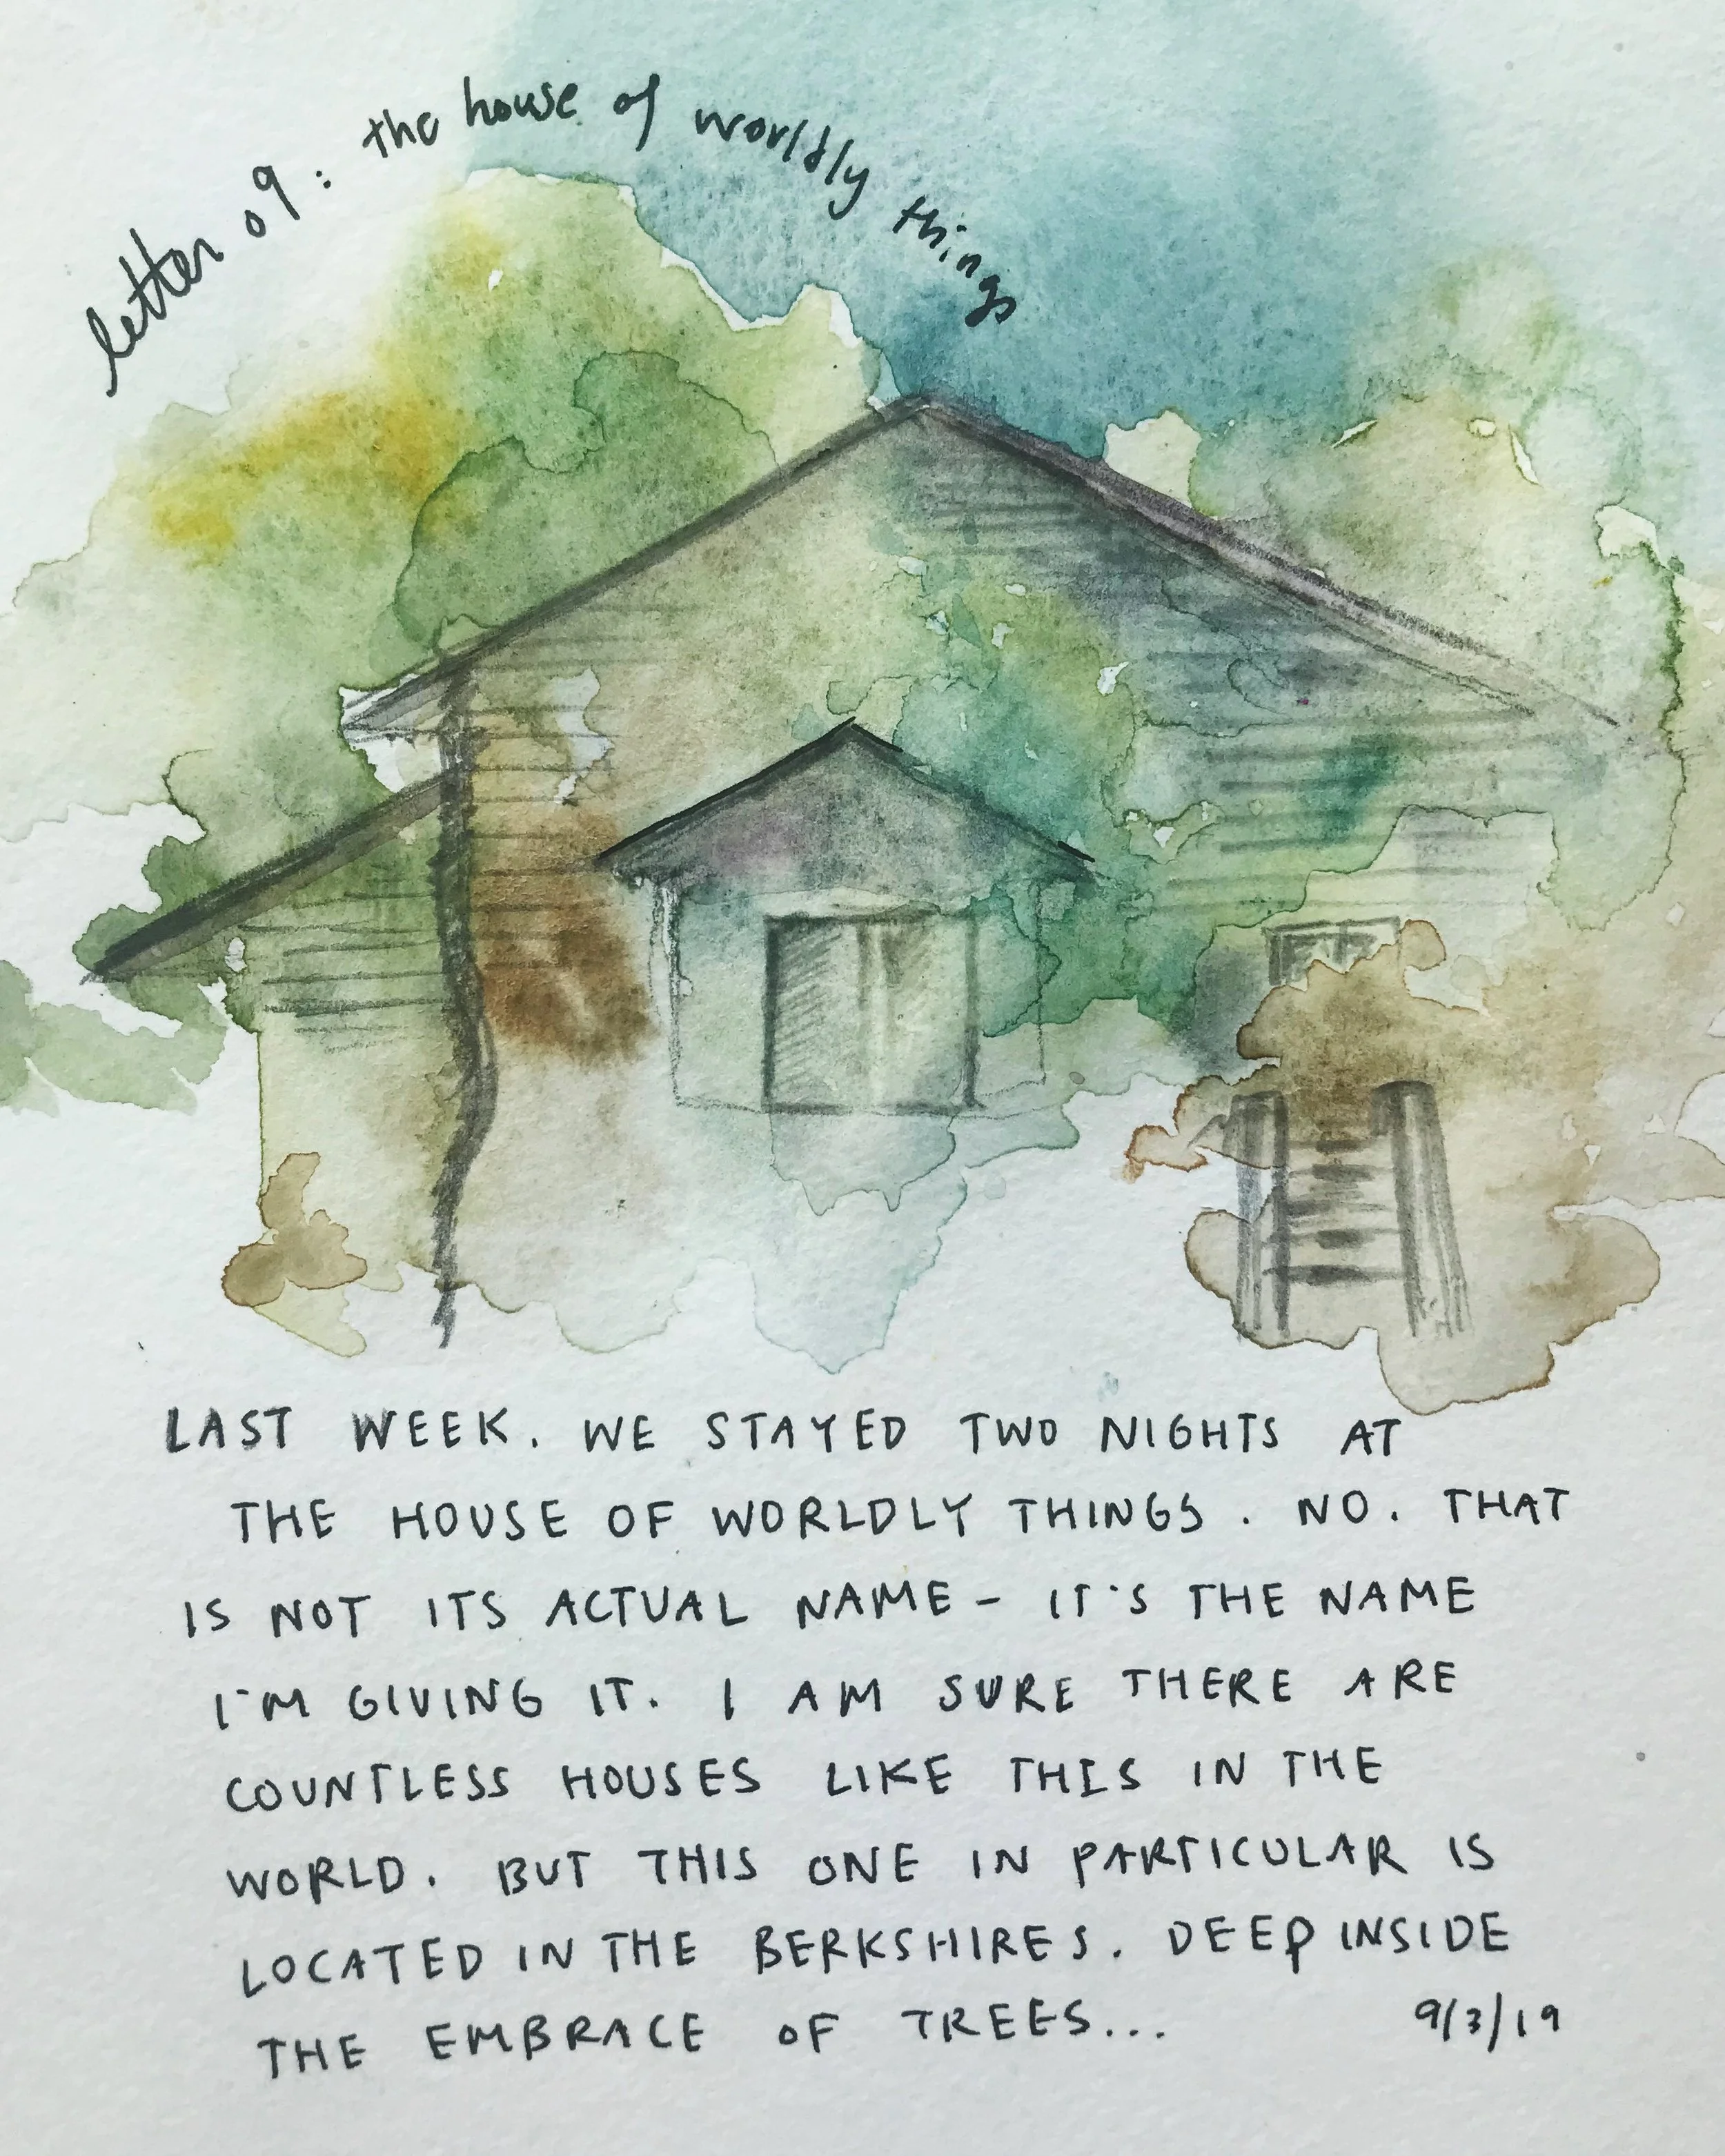 letter 09: the house of worldly things
LAST WEEK. WE STAYED TWO NIGHTS AT
THE HOUSE OF WORLDLY THINGS. NO. THAT
IS NOT ITS ACTUAL NAME - IT'S THE NAME
I'M GIVING IT. I AM SURE THERE ARE
COUNTLESS HOUSES LIKE THIS IN THE
WORLD. BUT THIS ONE IN PARTICULAR IS
LOCATED IN THE BERKSHIRES. DEEP INSIDE
THE EMBRACE OF TREES... 9/3/19